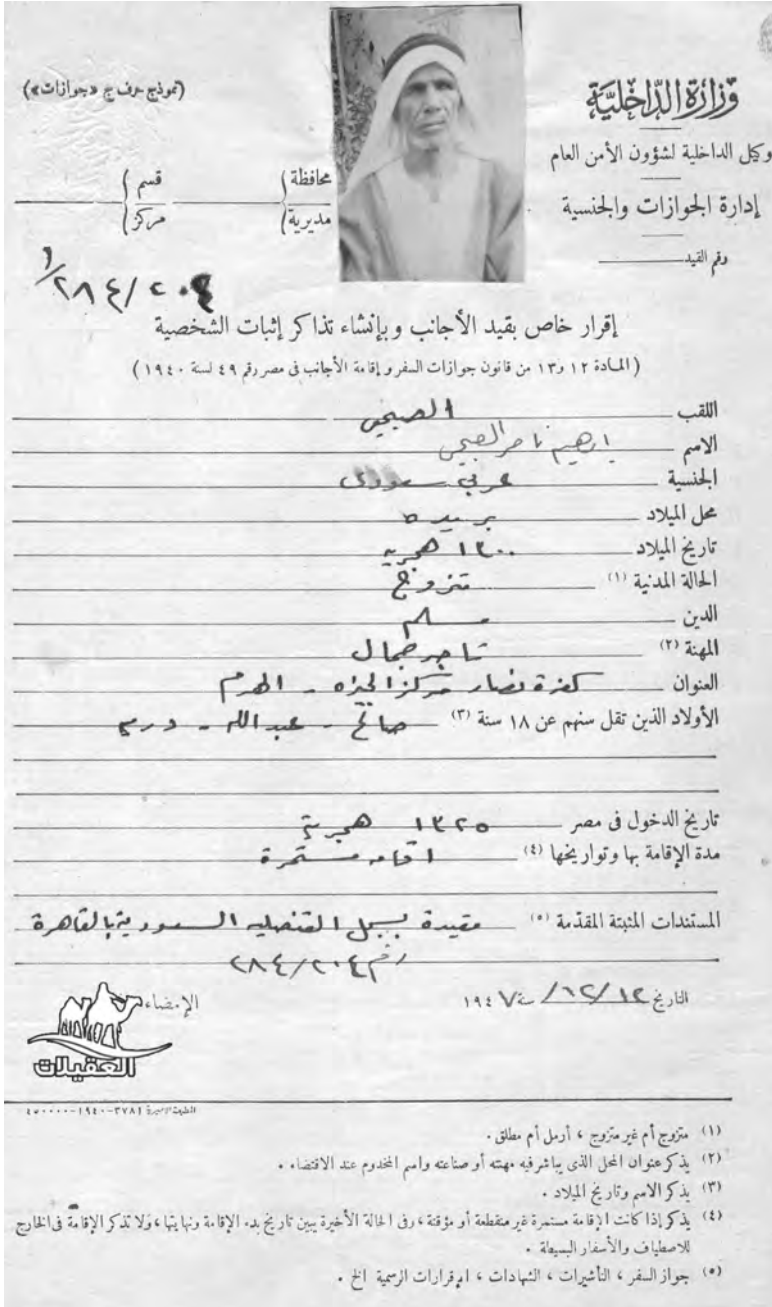 (نموذج حرف ج «جوازات»)
وزارة الداخلية
وكيل الداخلية لشؤون الأمن العام
إدارة الجوازات والجنسية
رقم القيد
محافظة
مديرية
قسم
مركز
٢٨٤/٢٠٤
إقرار خاص بقيد الأجانب وبإنشاء تذاكر إثبات الشخصية
(المادة ١٢ و١٣ من قانون جوازات السفر و إقامة الأجانب فى مصر رقم ٤٩ لسنة ١٩٤٠)
اللقب الصبحى
الاسم ابراهيم ناصر الصبحى
الجنسية عربى سعودى
محل الميلاد بريده
تاريخ الميلاد ١٣٠٠ هجريه
الحالة المدنية (١) متزوج
الدين مسلم
المهنة (٢) تاجر جمال
العنوان كفرة نصار مركز الجيزه - الهرم
الأولاد الذين تقل سنهم عن ١٨ سنة (٣) صالح - عبدالله -
تاريخ الدخول فى مصر ١٣٢٥ هجرية
مدة الإقامة بها وتواريخها (٤) اقامه مستمرة
المستندات المثبتة المقدّمة (٥) مقيدة بسجل القنصليه السعودية بالقاهرة
رقم ٢٨٤/٢٠٤
التاريخ ١٢/١٢/ سنة ١٩٤٧
الإمضاء
العقيلات
(١) متزوج أم غير متزوج ، أرمل أم مطلق .
(٢) يذكر عنوان المحل الذى يباشر فيه مهنته أو صناعته واسم المخدوم عند الاقتضاء .
(٣) يذكر الاسم وتاريخ الميلاد .
(٤) يذكر إذا كانت الإقامة مستمرة غير منقطعة أو مؤقتة ، وفى الحالة الأخيرة يبين تاريخ بدء الإقامة ونهايتها ، ولا تذكر الإقامة فى الخارج
للاصطياف والأسفار البسيطة .
(٥) جواز السفر ، التأشيرات ، الشهادات ، الإقرارات الرسمية الخ .